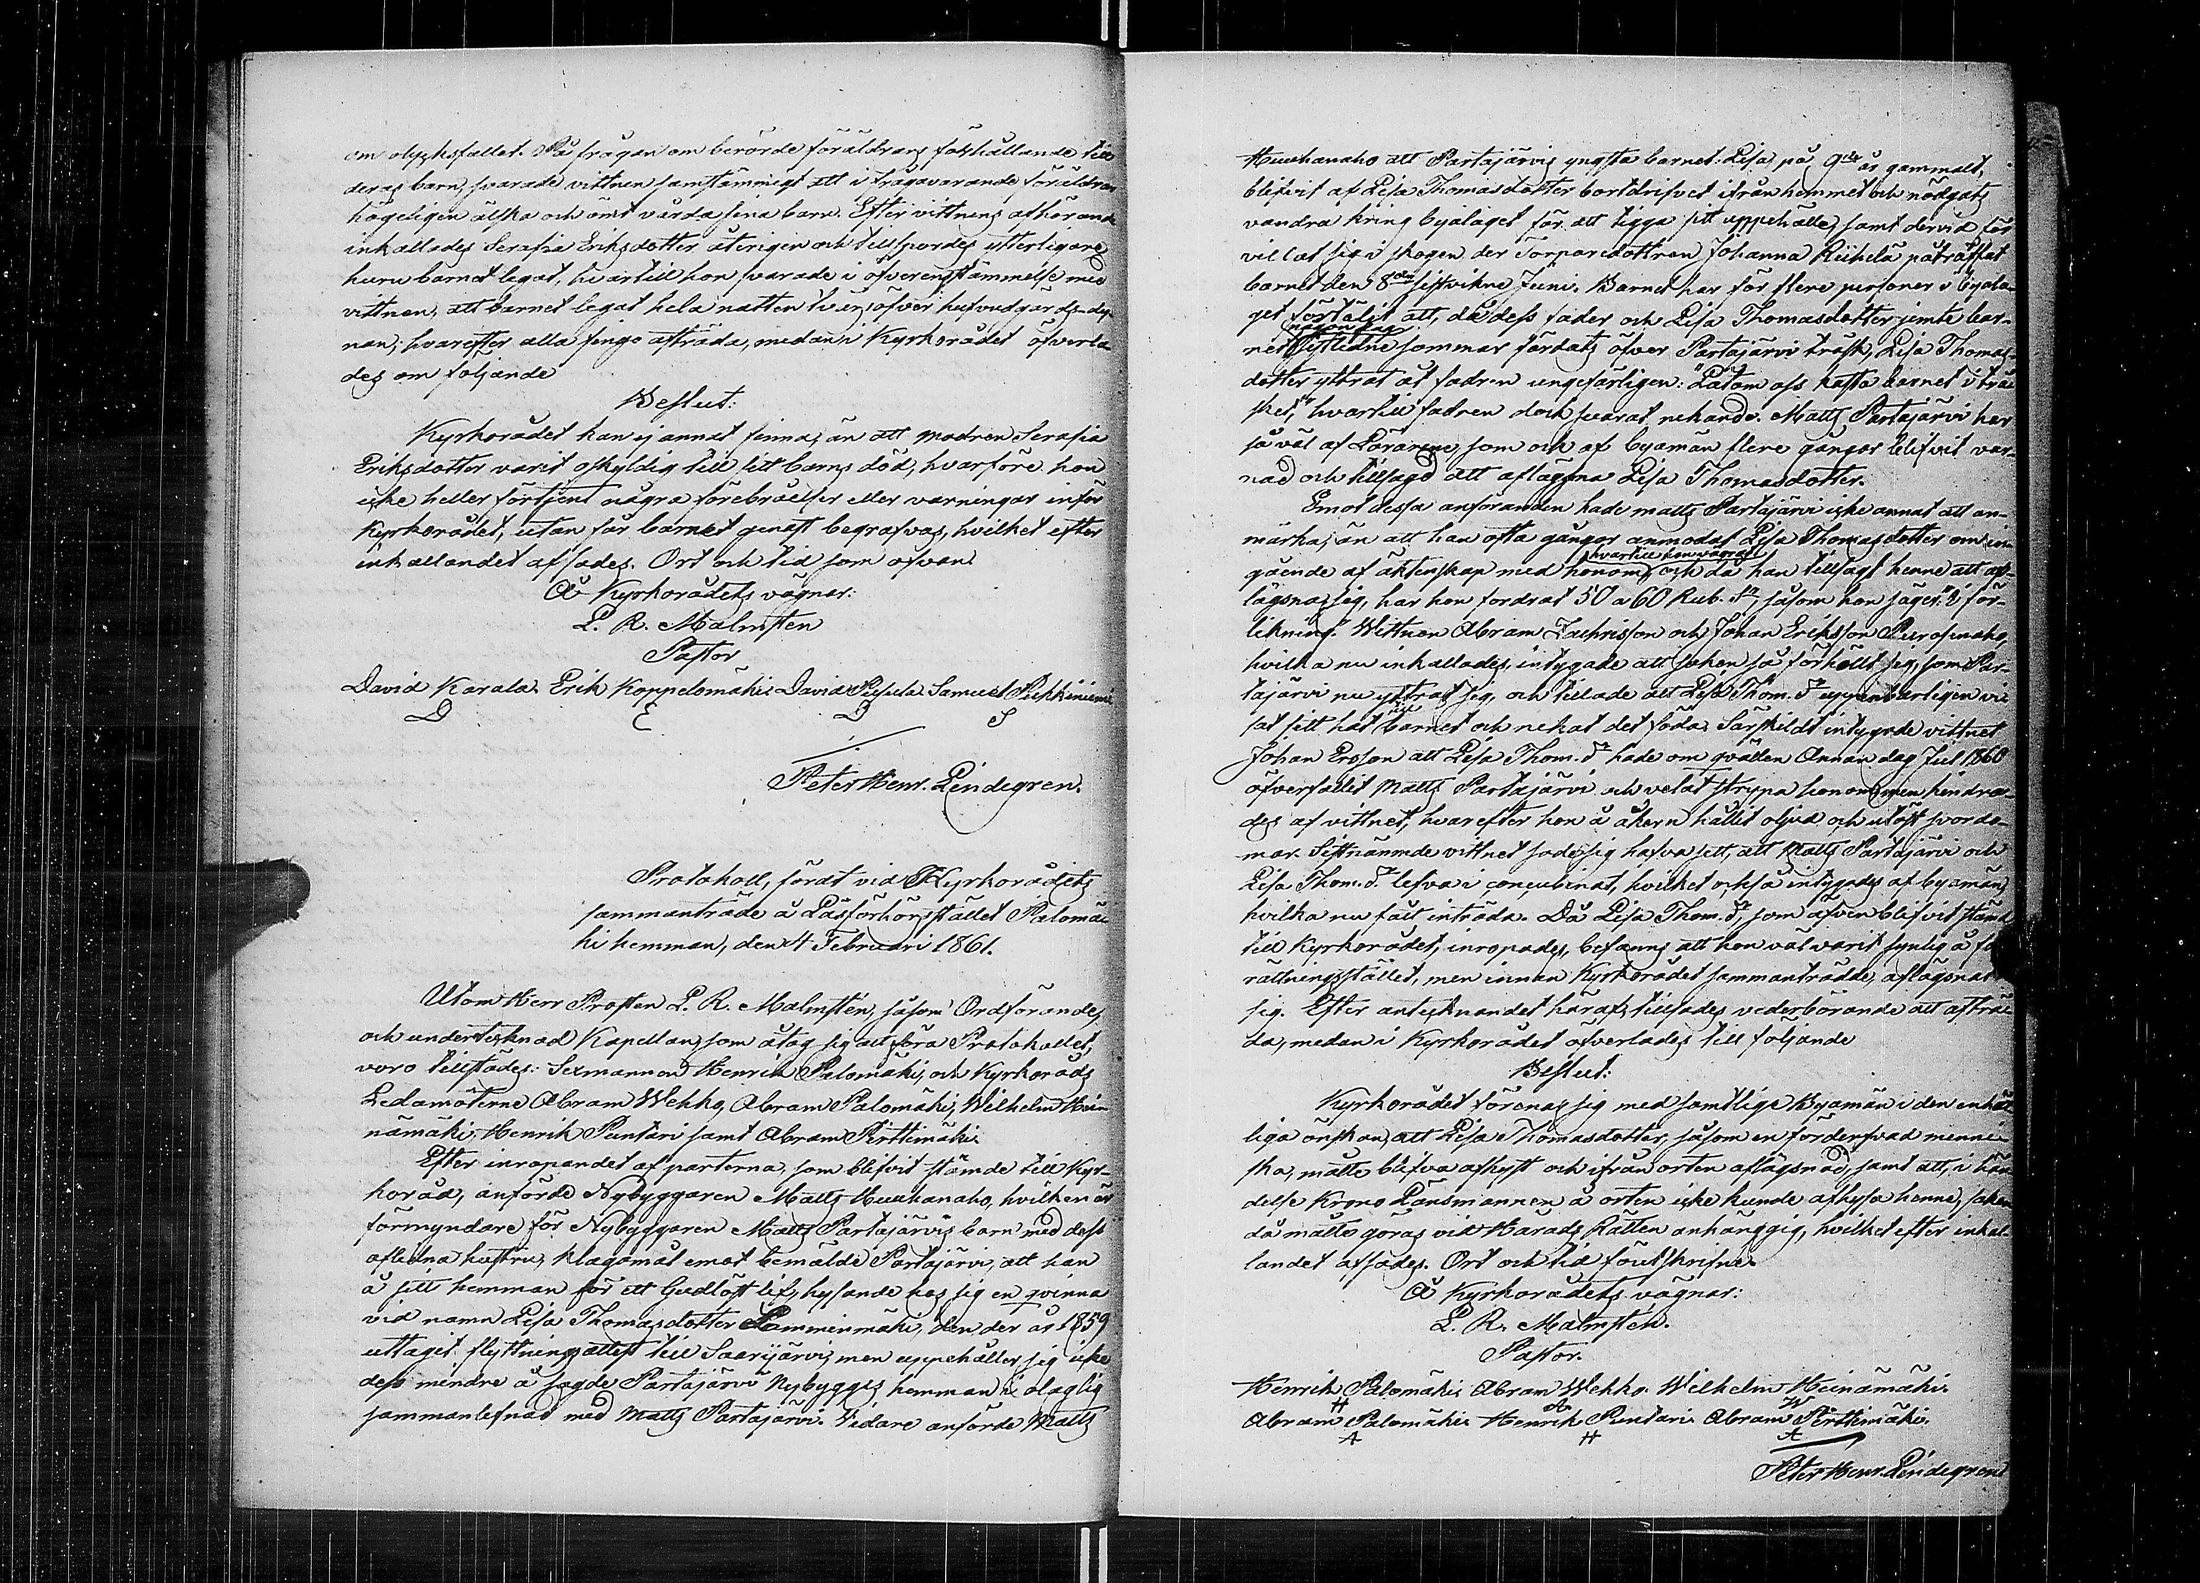 om olyksfallet. På frågan om berörde föräldrars förhållande till
deras barn, svarade vittnen samstämmigt att i frågavarande föräldrar
högeligen älska och ömt vårda sina barn. Efter vittnens afhörande
inkallades Serafia Eriksdotter återigen och tillspordes ytterligare
huru barnet legat, hvartill hon svarade i öfverensstämmelse med
vittnen, att barnet legat hela natten tvärsöfver hufvudgärds-dy-
nan; hvarefter alla fingo afträda, medan i Kyrkorådet öfverla-
des om följande
Beslut:
Kyrkorådet kan ej annat finna, än att modren Serafia
Eriksdotter varit oskyldig till sitt barns död, hvarföre hon
icke heller förtjent några förebråelser eller varningar inför
Kyrkorådet, utan får barnet genast begrafvas, hvilket efter
inkallandet afsades. Ort och tid som ofvan.
Å Kyrkorådets vägnar:
L. R. Malmsten
Pastor
David Karala. Erik Koppelomäki. David Pesula. Samuel Pihkiniemi
D E D S
Peter Henr. Lindegren.
Protokoll, fördt vid Kyrkorådets
sammanträde å Läsförhörsstället Palomä-
ki hemman, den 4 Februari 1861.
Utom Herr Prosten L. R. Malmstén, såsom Ordförande,
och undertecknad Kapellan, som åtog sig att föra Protokollet,
voro tillstädes: Sexmannen Henrik Palomäki, och Kyrkoråds
Ledamöterne Abram Wehko, Abram Palomäki, Wilhelm Hei-
nämäki, Henrik Puntari samt Abram Pirttimäki.
Efter inropandet af parterna, som blifvit stämde till Kyr-
koråd, anförde Nybyggaren Matts Huuhanaho, hvilken är
förmyndare för Nybyggaren Matts Partajärvis barn med dess
aflidna hustru, klagomål emot bemälde Partajärvi, att han
å sitt hemman för ett Gudlöst lif, hysande hos sig en qvinna
vid namn Lisa Thomasdotter Lamminmäki, den der år 1859
uttagit flyttningsattest till Saarijärvi, men uppehåller sig icke
dess mindre å sagde Partajärvi Nybygges hemman i olaglig
sammanlefnad med Matts Partajärvi. Vidare anförde Matts
Huuhanaho att Partajärvis yngsta barnet Lisa på 9de år gammalt,
blifvit af Lisa Thomasdotter bortdrifvet ifrån hemmet och nödgats
vandra kring byalaget för att tigga sitt uppehälle, samt dervid för-
villat sig i skogen der Torparedottren Johanna Riihelä påträffat
barnet den 8de sistvikne Juni. Barnet har för flere personer i byala-
get förtäljt att, då dess fader och Lisa Thomasdotter jemte bar-
net någon dag sistledne sommar färdats öfver Partajärvi träsk, Lisa Thomas-
dotter yttrat åt fadren ungefärligen: "Låtom oss kasta barnet i trä-
sket," hvartill fadren dock svarat nekande. Matts Partajärvi har
så väl af Lärarene, som och af byamän flere gånger blifvit var-
nad och tillsagd att aflägsna Lisa Thomasdotter.
Emot dessa anföranden hade Matts Partajärvi icke annat att an-
märka, än att han ofta gånger anmodat Lisa Thomasdotter om in-
gående af äktenskap med honom, hvartill hon vägrat och då han tillsagt henne att af-
lägsna sig, har hon fordrat 50 a 60 Rub. Sr, såsom hon säger "i för-
likning." Wittnen Abram Zachrisson och Johan Eriksson
hvilka nu inkallades, intygade att saken så förhållt sig, som Par-
tajärvi nu yttrat sig, och tillade att Lisa Thom. dr uppenbarligen vi-
sat sitt hat till barnet och nekat det föda. Särskildt intygade vittnet
Johan Ersson att Lisa Thom. dr hade om qvällen Annan dag Jul 1860
öfverfallit Matts Partajärvi och velat strypa honom, men hindra-
des af vittnet, hvarefter hon å åkern hållit oljud och utöst svordo-
mar. Sistnämnde vittnet sade sig hafva sett, att Matts Partajärvi och
Lisa Thom. dr lefva i concubinat, hvilket också intygades af byamän,
hvilka nu fått inträda. Då Lisa Thom. dr, som äfven blifvit stämd
till Kyrkorådet, inropades, befanns att hon väl varit synlig å
rättningsstället, men innan Kyrkorådet sammanträdde, aflägsnat
sig. Efter antecknandet häraf, tillsades vederbörande att afträ-
da, medan i Kyrkorådet öfverlades till följande
Beslut:
Kyrkorådet förenar sig med samtlige Byamän i den enhäl-
liga önskan, att Lisa Thomasdotter, såsom en förderfvad menni-
ska, måtte blifva afhyst och ifrån orten aflägsnad, samt att, i hän-
delse Krono Länsmannen å orten icke kunde afhysa henne, saken
då måtte göras vid Härads Rätten anhängig, hvilket efter inkal-
landet afsades. Ort och tid förutskrifne.
Å Kyrkorådets vägnar:
L. R. Malmstén.
Pastor.
Henrik Palomäki. Abram Wehko. Wilhelm Heinämäki.
H A W
Abram Palomäki. Henrik Puntari. Abram Pirttimäki.
A H A
Peter Henr. Lindegren